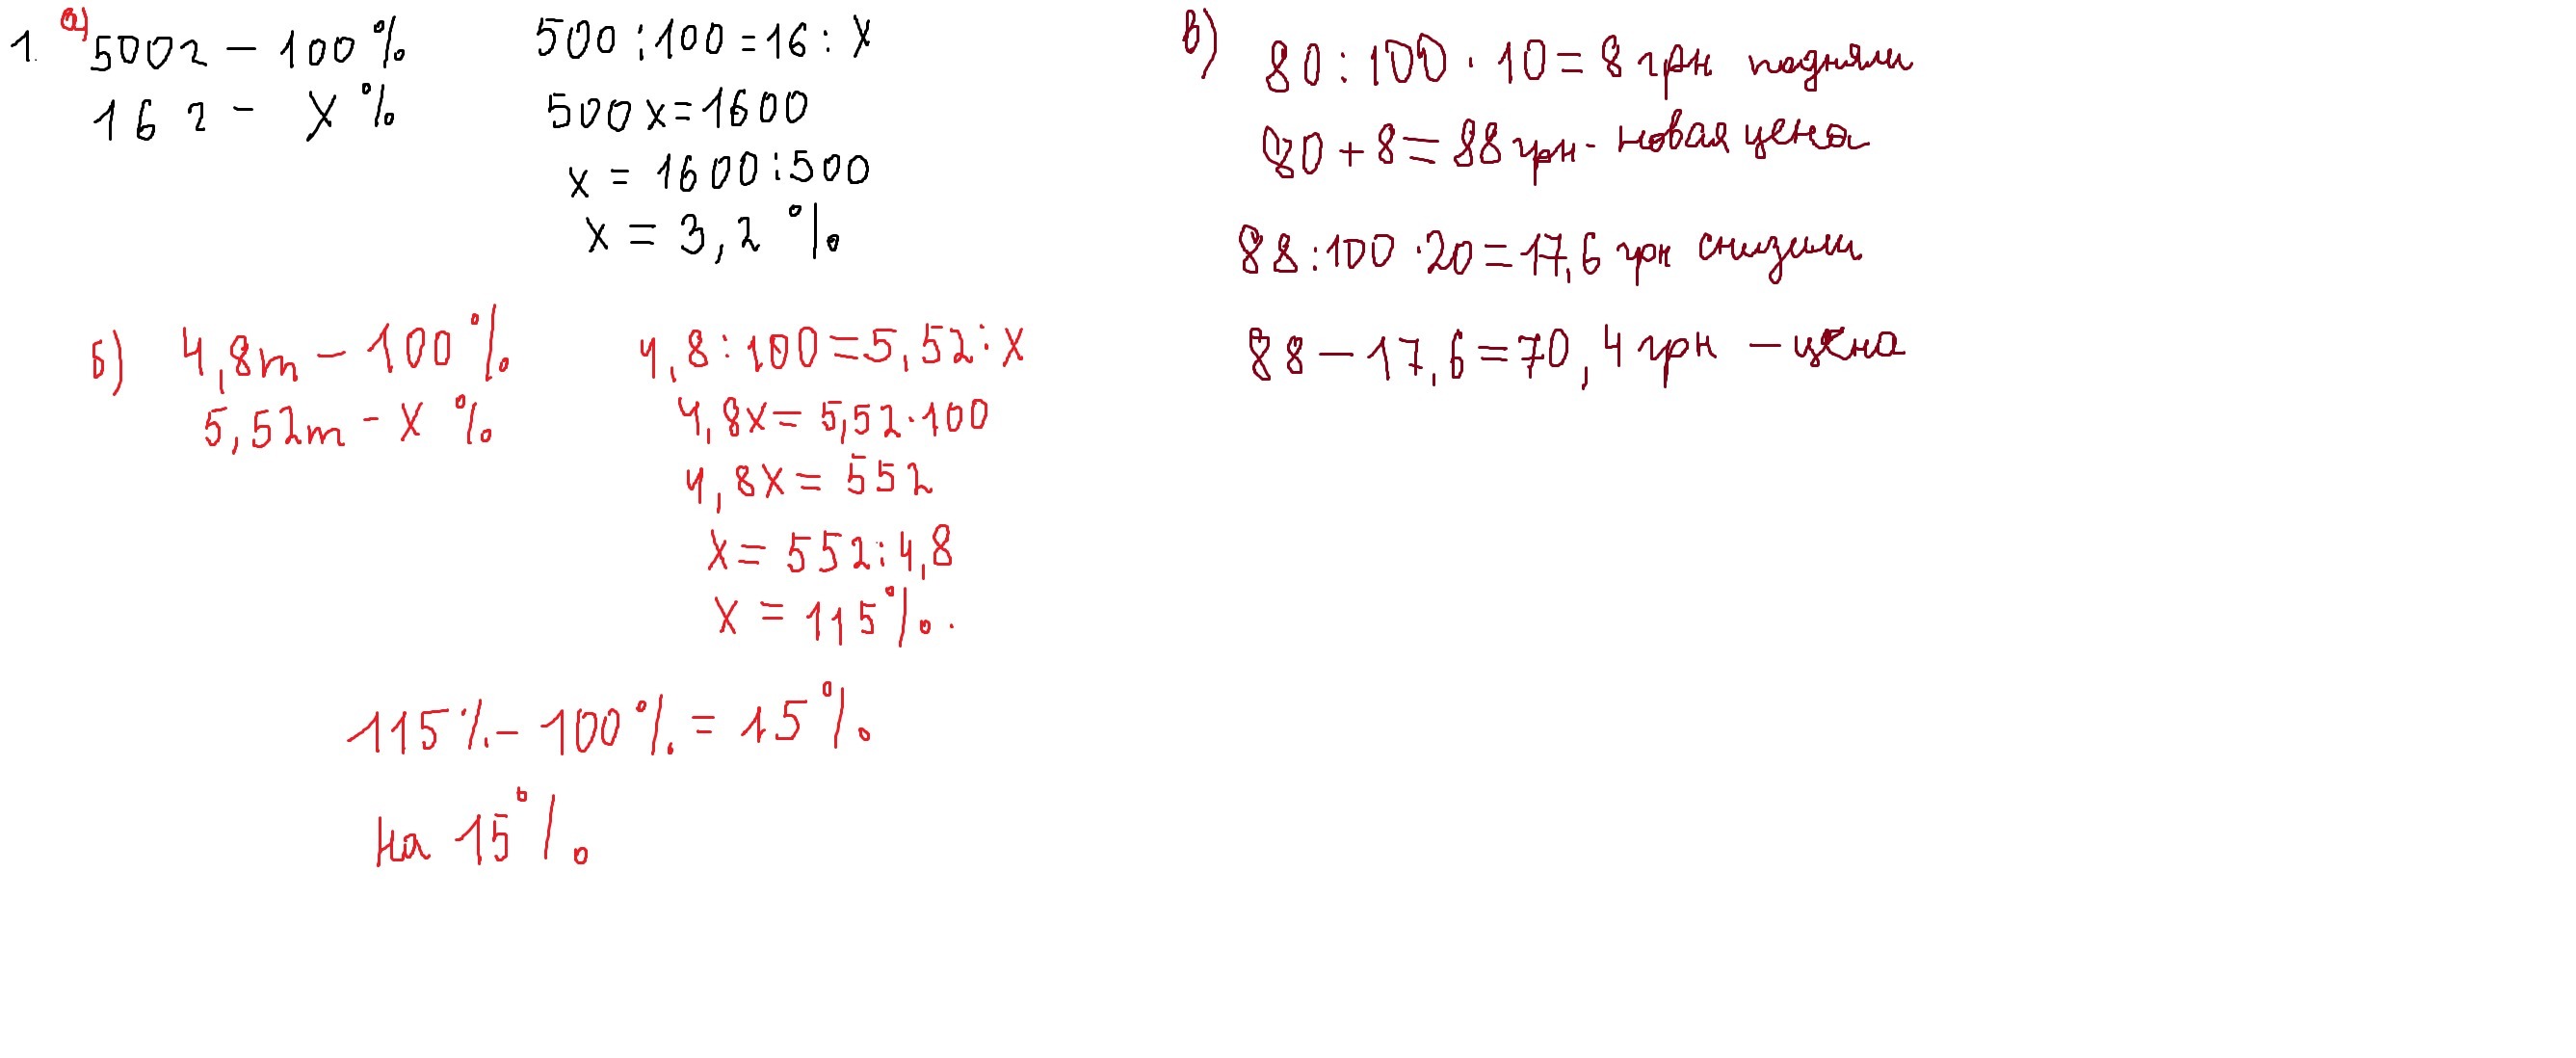 1. а) 500г – 100%
16 г – x %
500 : 100 = 16 : x
500 x = 1600
x = 1600 : 500
x = 3,2 %
б) 4,8 т – 100%
5,52 т – x %
4,8 : 100 = 5,52 : x
4,8x = 5,52 · 100
4,8x = 552
x = 552 : 4,8
x = 115%.
115% – 100% = 15%
на 15%
в) 80 : 100 · 10 = 8 грн подняли
80 + 8 = 88 грн - новая цена
88 : 100 · 20 = 17,6 грн снизили
88 – 17,6 = 70,4 грн – цена